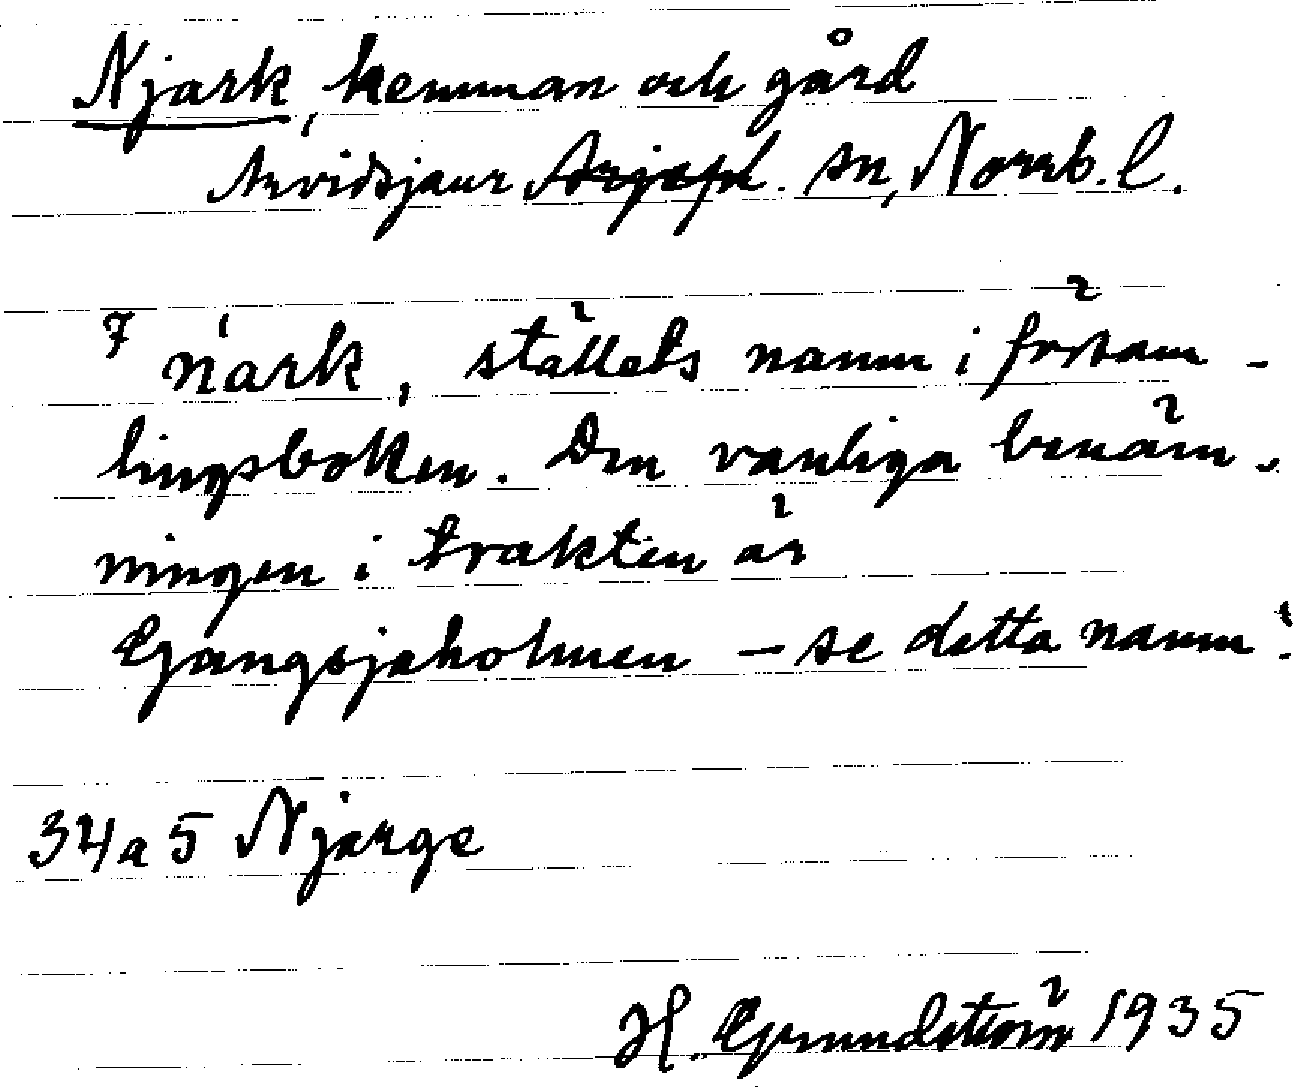 Njark, hemman och gård
Arvidsjaur Arjepl. sn, Norrb. l.
7 ńark, ställets namn i försam-
lingsboken. Den vanliga benäm-
ningen i trakten är
Gangsjaholmen – se detta namn!
34a5 Njarge
H. Grundström 1935